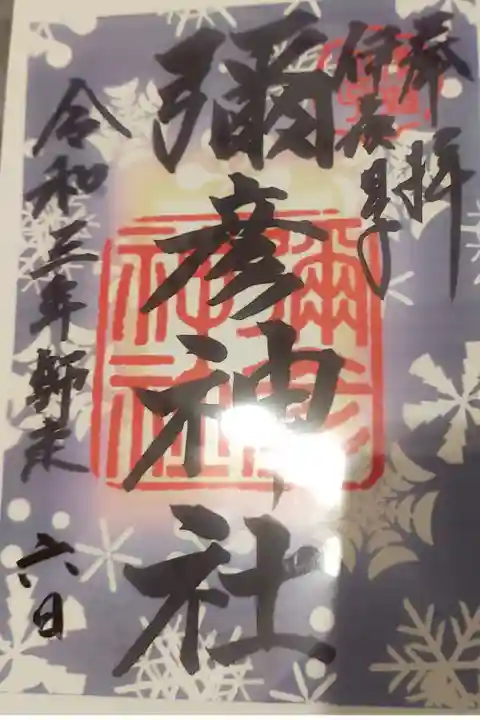 奉拝
伊夜日子
彌彦神社
彌彦
神社
令和三年師走 六日